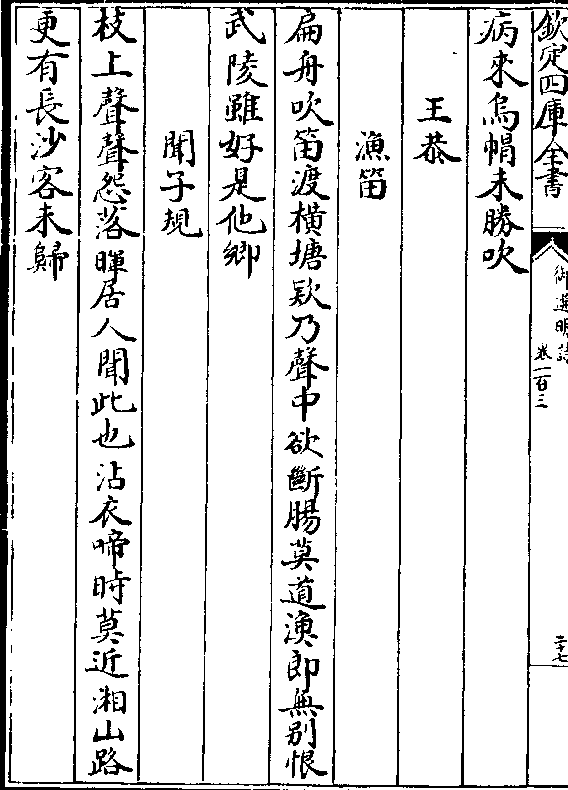 欽定四庫全書
御選明詩
卷一百三
二十七
病來烏帽未勝吹
王恭
漁笛
扁舟吹笛渡橫塘欵乃聲中欲斷腸莫道漁郎無别恨
武陵雖好是他鄉
聞子規
枝上聲聲怨落暉居人聞此也沾衣啼時莫近湘山路
更有長沙客未歸